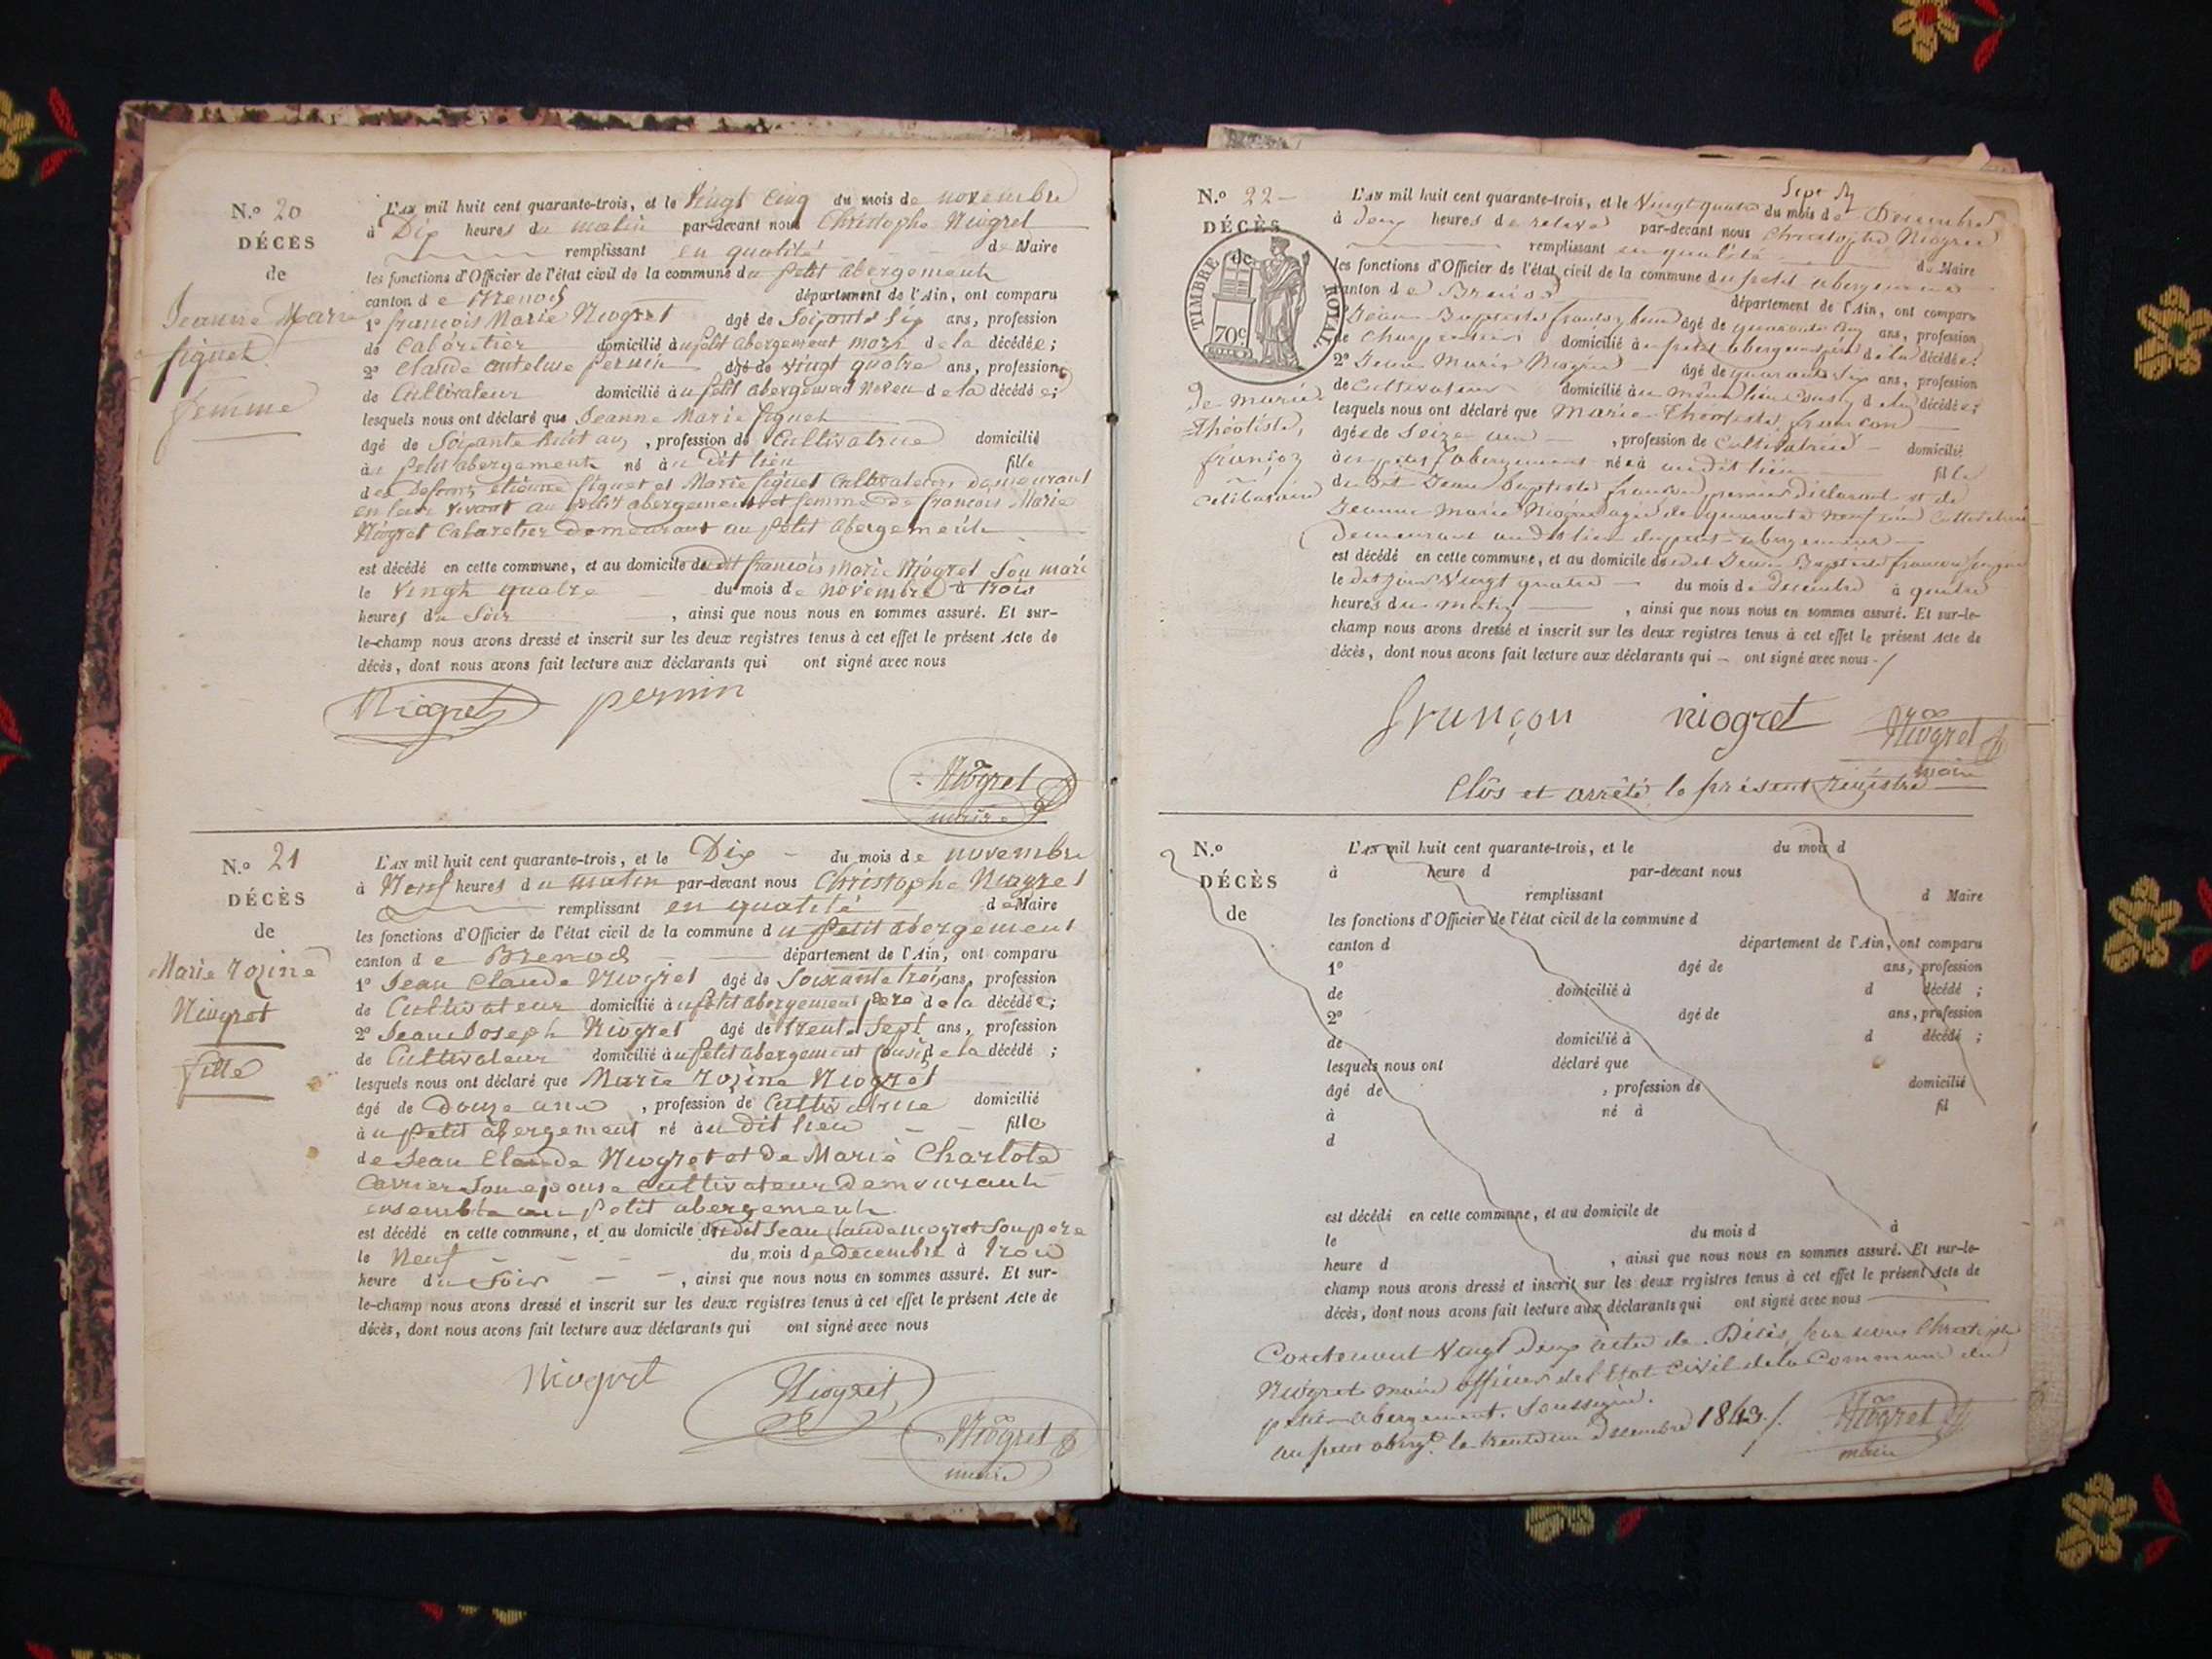 N.º 20
DÉCÈS
de
Jeanne Marie
figuet
femme
L'AN mil huit cent quarante-trois, et le Vingt Cinq du mois de novembre
à Dix heures du matin par-devant nous Christophe Niogret
remplissant en qualité de Maire
les fonctions d'Officier de l'état civil de la commune du petit abergement
canton de Brenod département de l'Ain, ont comparu
1º françois Marie Niogret âgé de Soixante Six ans, profession
de Cabaretier domicilié au petit abergement mari de la décédée;
2º Claude antelme pernin âgé de Vingt quatre ans, profession
de Cultivateur domicilié au petit abergement Neveu de la décédée;
lesquels nous ont déclaré que Jeanne Marie figuet
âgé de Soixante huit ans, profession de Cultivatrice domicilié
au petit abergement né au dit lieu fille
des défunts étienne figuet et Marie figuet Cultivateurs demeurant
en leur vivant au petit abergement et femme de françois Marie
Niogret Cabaretier demeurant au petit abergement
est décédé en cette commune, et au domicile du dit françois Marie Niogret Son mari
le Vingt quatre du mois de novembre à trois
heures du Soir , ainsi que nous nous en sommes assuré. Et sur-
le-champ nous avons dressé et inscrit sur les deux registres tenus à cet effet le présent Acte de
décès, dont nous avons fait lecture aux déclarants qui ont signé avec nous
Niogret pernin
Niogret
maire
N.º 21
DÉCÈS
de
Marie rozine
Niogret
fille
L'AN mil huit cent quarante-trois, et le Dix du mois de novembre
à Neuf heures du matin par-devant nous Christophe Niogret
remplissant en qualité de Maire
les fonctions d'Officier de l'état civil de la commune du petit abergement
canton de Brenod département de l'Ain, ont comparu
1º Jean Claude Niogret âgé de Soixante trois ans, profession
de Cultivateur domicilié au petit abergement père de la décédée;
2º Jean Joseph Niogret âgé de trente Sept ans, profession
de Cultivateur domicilié au petit abergement Cousin de la décédé ;
lesquels nous ont déclaré que Marie rozine Niogret
âgé de douze ans , profession de Cultivatrice domicilié
au petit abergement né au dit lieu fille
de Jean Claude Niogret et de Marie Charlote
Carrier Son epouse Cultivateur demeurant
ensemble au petit abergement
est décédé en cette commune, et au domicile du dit Jean Claude niogret Son pere
le Neuf du mois de decembre à trois
heure du Soir , ainsi que nous nous en sommes assuré. Et sur-
le-champ nous avons dressé et inscrit sur les deux registres tenus à cet effet le présent Acte de
décès, dont nous avons fait lecture aux déclarants qui ont signé avec nous
Niogret
Niogret
Niogret
maire
N.º 22
DÉCÈS
de
TIMBRE ROYAL
70c
de marie
Théotiste,
françoz
Célibataire
L'AN mil huit cent quarante-trois, et le Vingt quatre du mois de Decembre
à deux heures de relevé par-devant nous Christophe Niogret
remplissant en qualité de Maire
les fonctions d'Officier de l'état civil de la commune du petit abergement
canton de Brenod département de l'Ain, ont comparu
Jean Baptiste âgé de quarante Cinq ans, profession
de Charpentier domicilié au petit abergement père de la décédée;
2º Jean Marie Niogret âgé de quarante Six ans, profession
de Cultivateur domicilié au même lieu Cousin de la décédée;
lesquels nous ont déclaré que Marie Théotiste françon
âgée de Seize ans , profession de Cultivatrice domicilié
au petit abergement née à au dit lieu fille
du dit Jean Baptiste françon, premier déclarant et de
Jeanne Marie Niogret agée de quarante neuf ans Cultivatrice
Demeurant au dit lieu du petit abergement
est décédé en cette commune, et au domicile du dit Jean Baptiste françon Son pere
le dit jour Vingt quatre du mois de Decembre à quatre
heures du matin , ainsi que nous nous en sommes assuré. Et sur-le-
champ nous avons dressé et inscrit sur les deux registres tenus à cet effet le présent Acte de
décès, dont nous avons fait lecture aux déclarants qui ont signé avec nous
françon niogret Niogret
maire
Clôs et arrêté le présent Régistre
N.º
DÉCÈS
de
L'AN mil huit cent quarante-trois, et le du mois d
à heure d par-devant nous
remplissant d Maire
les fonctions d'Officier de l'état civil de la commune d
canton d département de l'Ain, ont comparu
1º âgé de ans, profession
de domicilié à d décédé ;
2º âgé de ans, profession
de domicilié à d décédé ;
lesquels nous ont déclaré que
âgé de , profession de domicilié
à né à fil
d
est décédé en cette commune, et au domicile de
le du mois d à
heure d , ainsi que nous nous en sommes assuré. Et sur-le-
champ nous avons dressé et inscrit sur les deux registres tenus à cet effet le présent Acte de
décès, dont nous avons fait lecture aux déclarants qui ont signé avec nous
Contenant Vingt deux actes de Décès, par nous Christophe
Niogret maire officier de l'Etat Civil de la Commune du
petit abergement. Soussigné.
au petit aberg.t le trente un Decembre 1843./. Niogret
maire